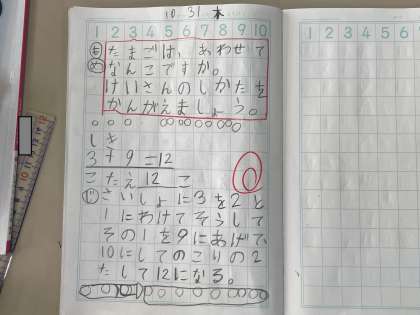 10.31 木
1 2 3 4 5 6 7 8 9 10
め たまごは、あわせて
なんこですか。
けいさんのしかたを
かんがえましょう。
しき
3+9=12
こたえ 12こ
じ さいしょに3を2と
1にわけてそうして
その1を9にあげて、
10にしてのこりの2
たして12になる。
1 2 3 4 5 6 7